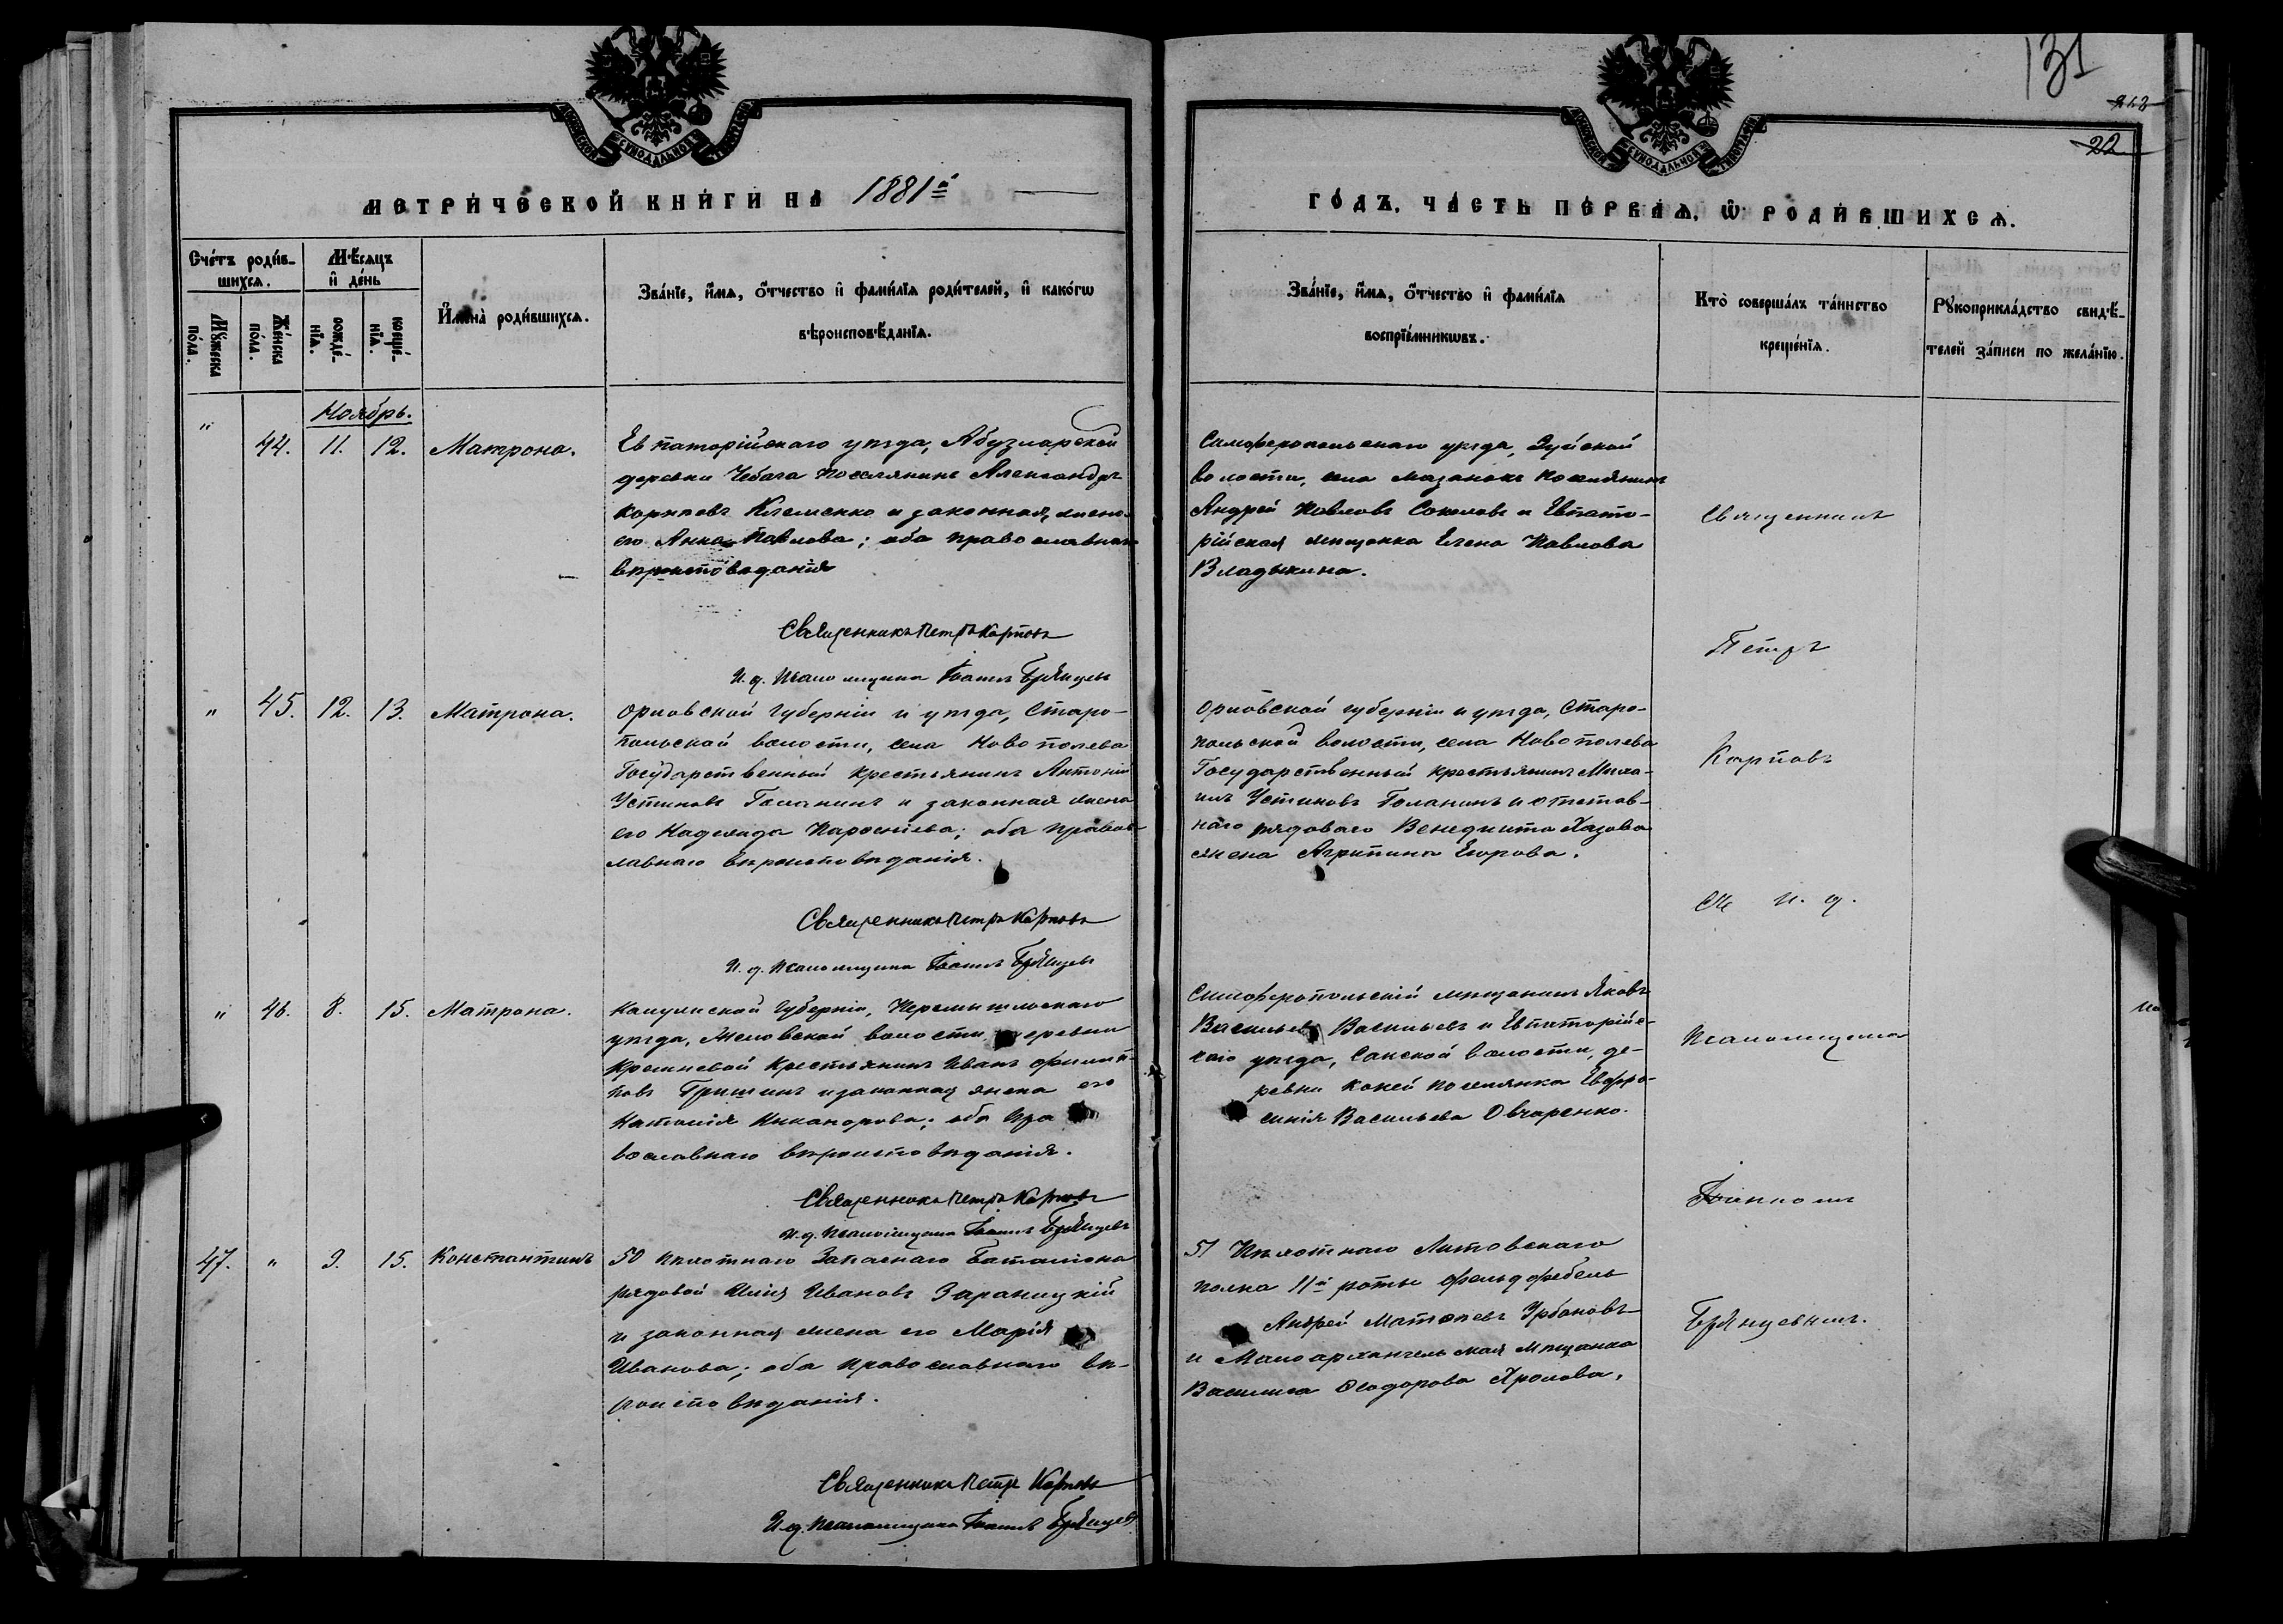 131
213
22
МОСКОВСКОЙ СѴНОДАЛЬНОЙ ТИПОГРАФІИ
МОСКОВСКОЙ СѴНОДАЛЬНОЙ ТИПОГРАФІИ
МЕТРИ́ЧЕСКОЙ КНИ́ГИ НА 1881й
ГО́ДЪ, ЧА́СТЬ ПЕ́РВАЯ, Ѡ РОДИ́ВШИХСЯ.
Сче́тъ роди́в-
шихся.
Мѣ́сяцъ
и де́нь
Мꙋ́жеска по́ла.
Же́нска по́ла.
рожде́-
нїя.
креще́-
нїя.
Имена̀ роди́вшихся.
Зва́нїе, и́мя, о́тчество и фами́лїя роди́телей, и како́гѡ
вѣроисповѣ́данїя.
Зва́нїе, и́мя, о́тчество и фами́лїя
воспрїе́мникѡвъ.
Кто̀ соверша́лъ та́инство
креще́нїя.
Рꙋкоприкла́дство свидѣ́-
телей за́писи по жела́нїю.
Ноябрь.
" 44. 11. 12. Матрона.
Евпаторійскаго уѣзда, Абузларской
деревни Чебага поселянинъ Александръ
Карповъ Клеменко и законная жена
его Анна Павлова; оба православнаго
вѣроисповѣданія
Священникъ Петръ Карповъ
И. д. Псаломщика Іоаннъ Брянцевъ
Симферопольскаго уѣзда, Зуйской
волости, села Мазанокъ поселянинъ
Андрей Павловъ Соколовъ и Евпато-
рійская мѣщанка Елена Павлова
Владыкина.
" 45. 12. 13. Матрона.
Орловской губерніи и уѣзда, Старо-
польской волости, села Новополева
Государственный крестьянинъ Антоній
Устиновъ Голанинъ и законная жена
его Надежда Пароеніева; оба правос-
лавнаго вѣроисповѣданія.
Священникъ Петръ Карповъ
И. д. Псаломщика Іоаннъ Брянцевъ
Орловской губерніи и уѣзда, Старо-
польской волости, села Новополева
Государственный крестьянинъ Миха-
илъ Устиновъ Голанинъ и отстав-
наго рядоваго Венедикта Хазова
жена Агрипина Егорова.
" 46. 8. 15. Матрона.
Калужской Губерніи, Перемышльскаго
уѣзда, Желовской волости деревни
Кремневой Крестьянинъ Иванъ Филип-
повъ Гришинъ и законная жена его
Наталія Никанорова; оба пра
вославнаго вѣроисповѣданія.
Священникъ Петръ Карповъ
И. д. Псаломщика Іоаннъ Брянцевъ
Симферопольскій мѣщанинъ Яковъ
Васильевъ Васильевъ и Евпаторійс-
каго уѣзда, Сакской волости, де-
ревни Коней поселянка Евфро-
синія Васильева Овчаренко.
47. " 9. 15. Константинъ
50 пѣхотнаго Запаснаго Баталіона
рядовой Илія Ивановъ Зараницкій
и законная жена его Марія
Иванова; оба православнаго вѣ-
роисповѣданія.
Священникъ Петръ Карповъ
И. д. Псаломщика Іоаннъ Брянцевъ
51 Пѣхотнаго Литовскаго
полка 11й роты фельдфебель
Андрей Матвѣевъ Урбановъ
и Малоархангельская мѣщанка
Василиса Ѳеодорова Хролова.
Священникъ
Петръ
Карповъ
съ и. д.
Псаломщика
Іоанномъ
Брянцевымъ.